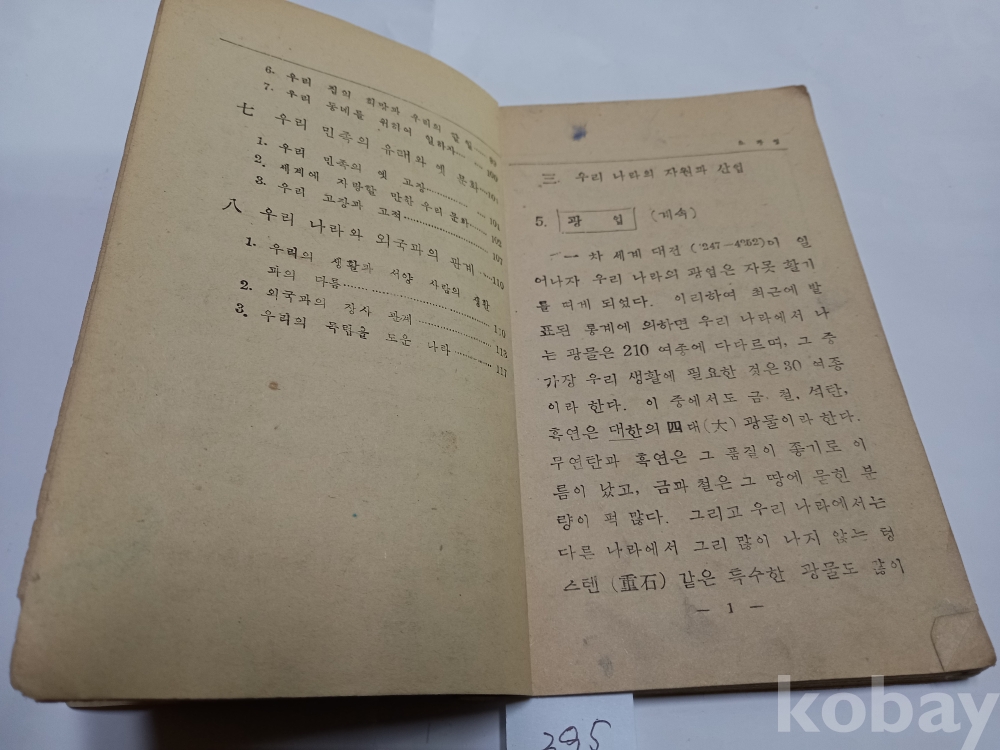 6. 우리 집의 희망과 우리의 할 일
7. 우리 동네를 위하여 일하자 100
七 우리 민족의 유래와 옛 문화
1. 우리 민족의 옛 고장 101
2. 세계에 자랑할 만한 우리 문화 102
3. 우리 고장과 고적 107
八 우리 나라와 외국과의 관계 110
1. 우리의 생활과 서양 사람의 생활
과의 다름 110
2. 외국과의 장사 관계 113
3. 우리의 독립을 도운 나라 117
三 우리 나라의 자원과 산업
5. 광 업 (계속)
一차 세계 대전 ('247—4252)이 일
어나자 우리 나라의 광업은 자못 활기
를 띠게 되었다. 이리하여 최근에 발
표된 통계에 의하면 우리 나라에서 나
는 광물은 210 여종에 다다르며, 그 중
가장 우리 생활에 필요한 것은 30 여종
이라 한다. 이 중에서도 금. 철, 석탄,
흑연은 대한의 四대(大) 광물이라 한다.
무연탄과 흑연은 그 품질이 좋기로 이
름이 났고, 금과 철은 그 땅에 묻힌 분
량이 퍽 많다. 그리고 우리 나라에서는
다른 나라에서 그리 많이 나지 않는 텅
스텐 (重石) 같은 특수한 광물도 많이
— 1 —
295
kobay